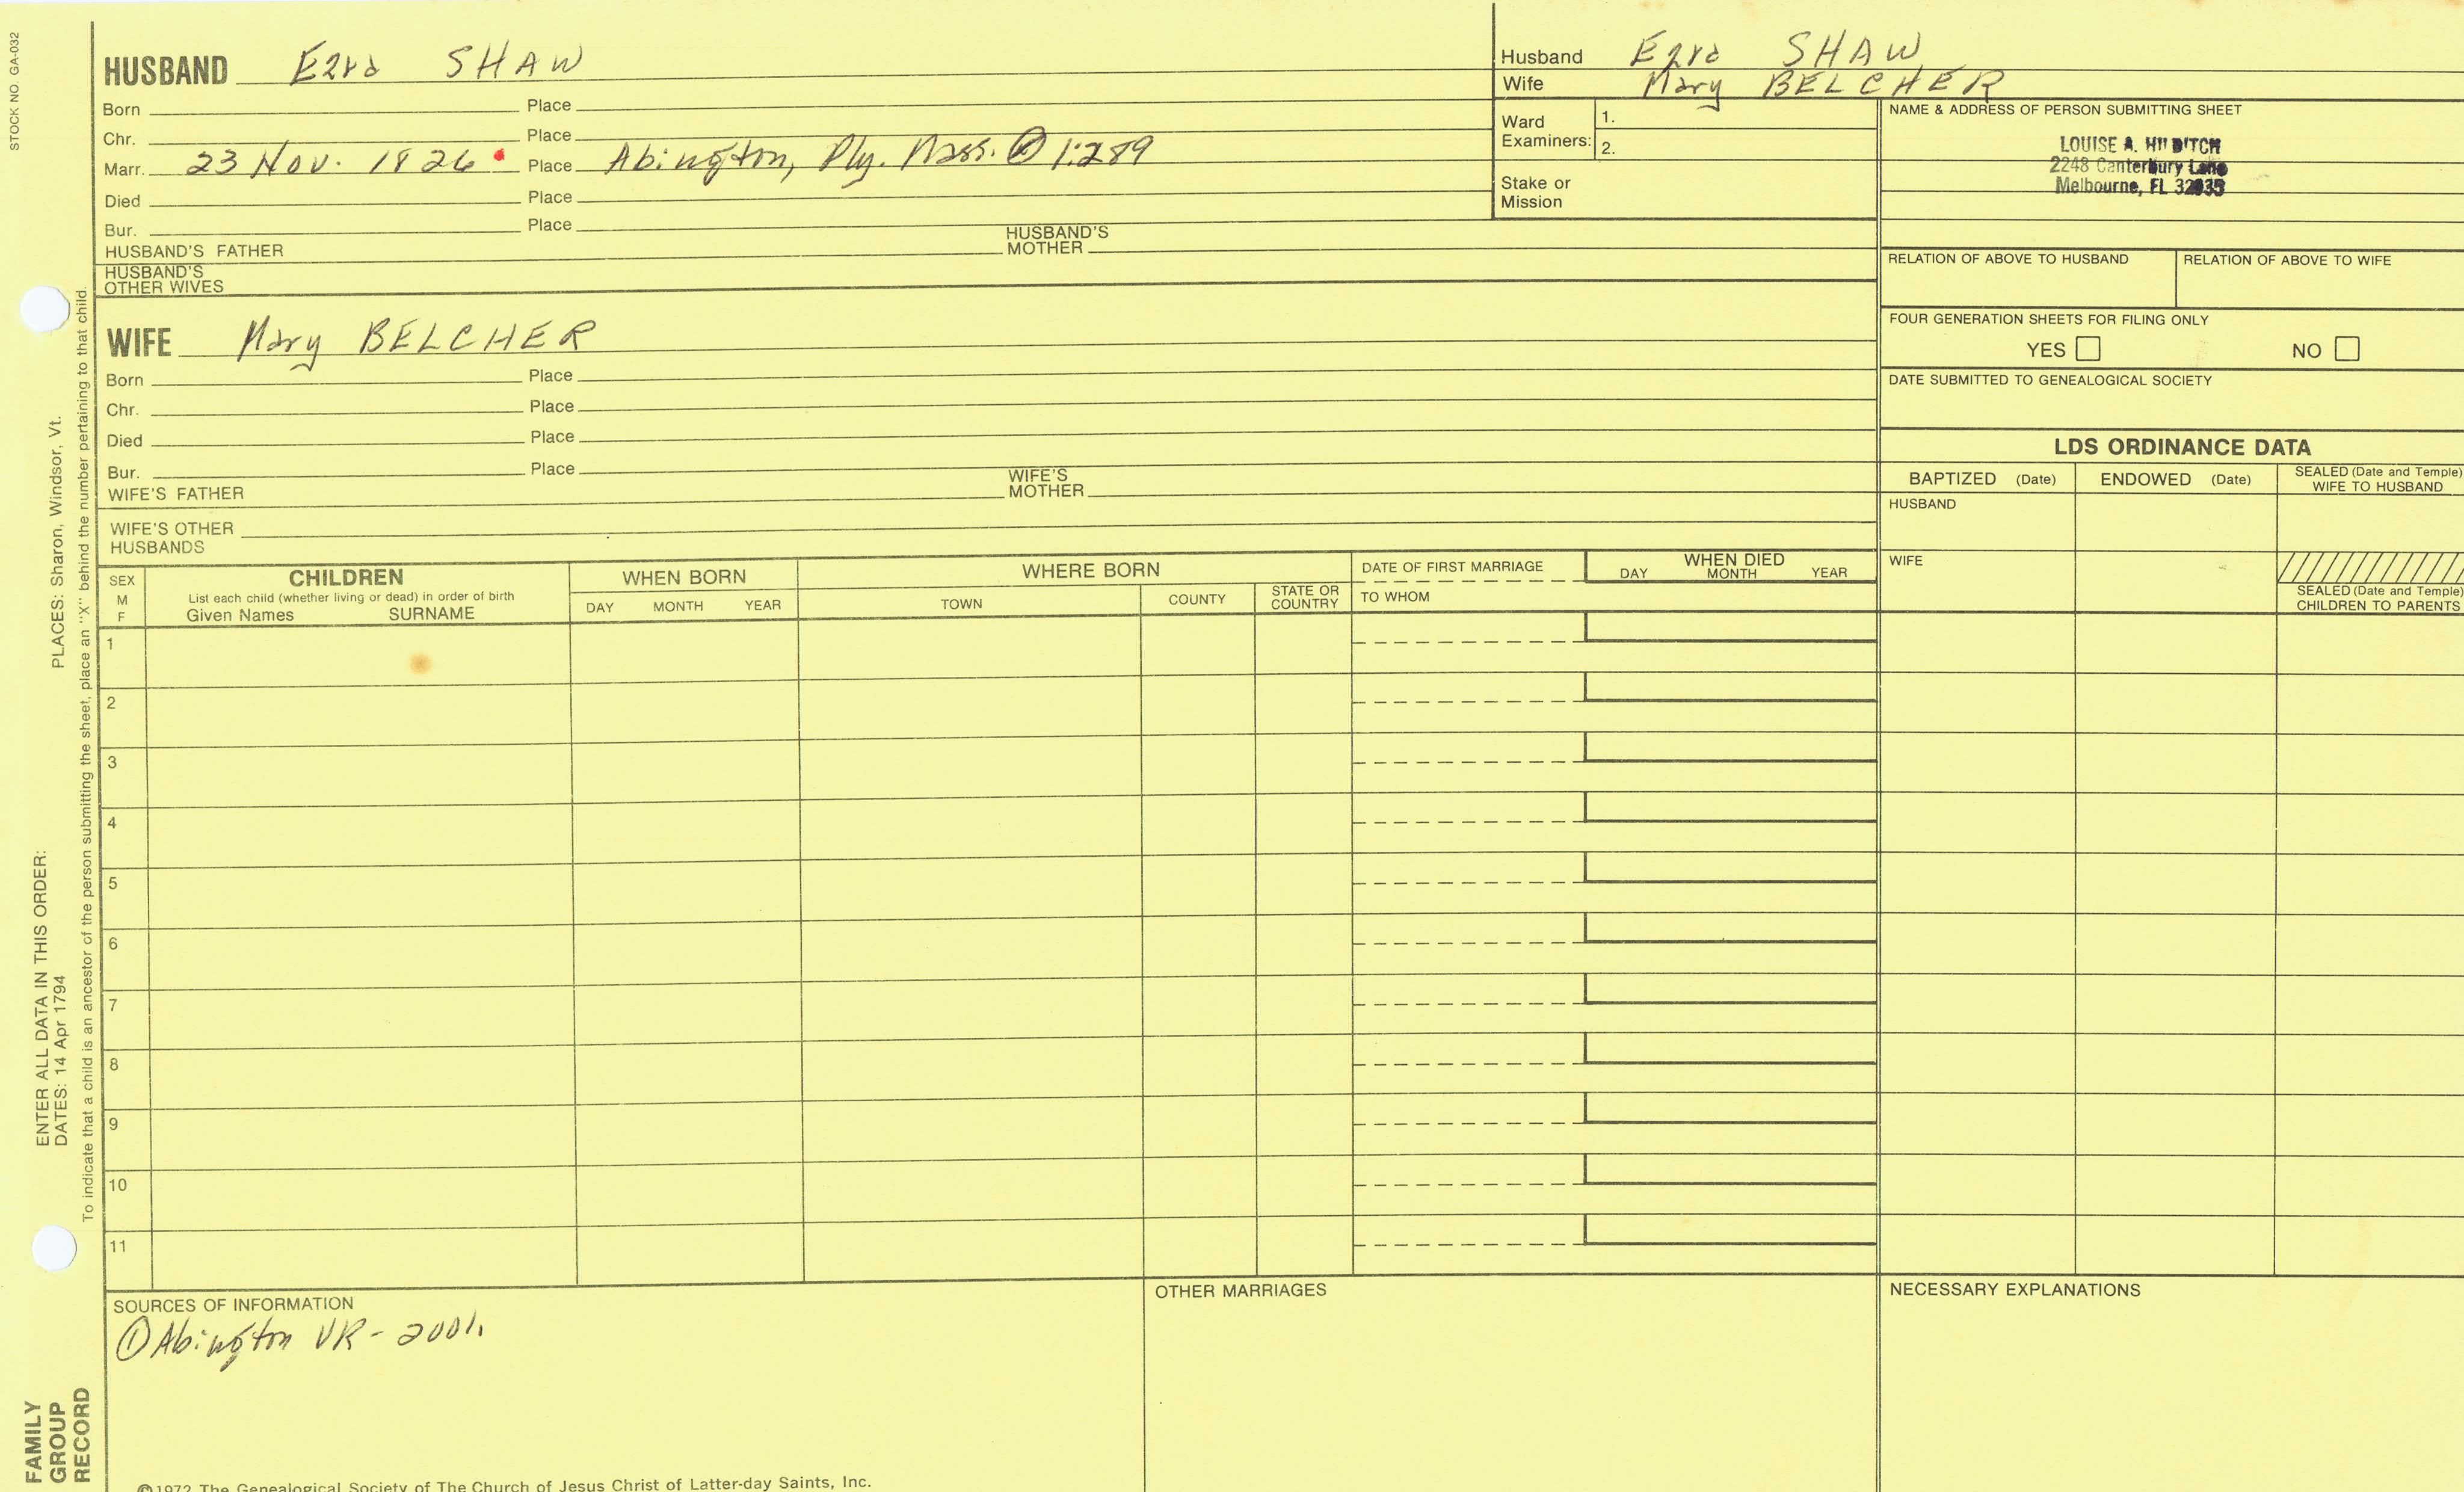 STOCK NO. GA-032
HUSBAND Ezra SHAW
Born Place
Chr. Place
Marr. 23 Nov. 1826 Place Abington, Ply. Mass. ① 1:289
Died Place
Bur. Place
HUSBAND'S FATHER HUSBAND'S MOTHER
HUSBAND'S
OTHER WIVES
WIFE Mary BELCHER
Born Place
Chr. Place
Died Place
Bur. Place
WIFE'S FATHER WIFE'S MOTHER
WIFE'S OTHER
HUSBANDS
Husband Ezra SHAW
Wife Mary BELCHER
Ward
Examiners:
1.
2.
Stake or
Mission
NAME & ADDRESS OF PERSON SUBMITTING SHEET
LOUISE A. HILDITCH
2248 Canterbury Lane
Melbourne, FL
RELATION OF ABOVE TO HUSBAND
RELATION OF ABOVE TO WIFE
FOUR GENERATION SHEETS FOR FILING ONLY
YES NO
DATE SUBMITTED TO GENEALOGICAL SOCIETY
LDS ORDINANCE DATA
BAPTIZED (Date)
ENDOWED (Date)
SEALED (Date and Temple)
WIFE TO HUSBAND
HUSBAND
WIFE
SEALED (Date and Temple)
CHILDREN TO PARENTS
SEX
M
F
CHILDREN
List each child (whether living or dead) in order of birth
Given Names SURNAME
WHEN BORN
DAY MONTH YEAR
WHERE BORN
TOWN
COUNTY
STATE OR
COUNTRY
DATE OF FIRST MARRIAGE
TO WHOM
WHEN DIED
DAY MONTH YEAR
1
2
3
4
5
6
7
8
9
10
11
SOURCES OF INFORMATION
① Abington VR-
OTHER MARRIAGES
NECESSARY EXPLANATIONS
©1972 The Genealogical Society of The Church of Jesus Christ of Latter-day Saints, Inc.
FAMILY
GROUP
RECORD
ENTER ALL DATA IN THIS ORDER:
DATES: 14 Apr 1794
PLACES: Sharon, Windsor, Vt.
To indicate that a child is an ancestor of the person submitting the sheet, place an "X" behind the number pertaining to that child.